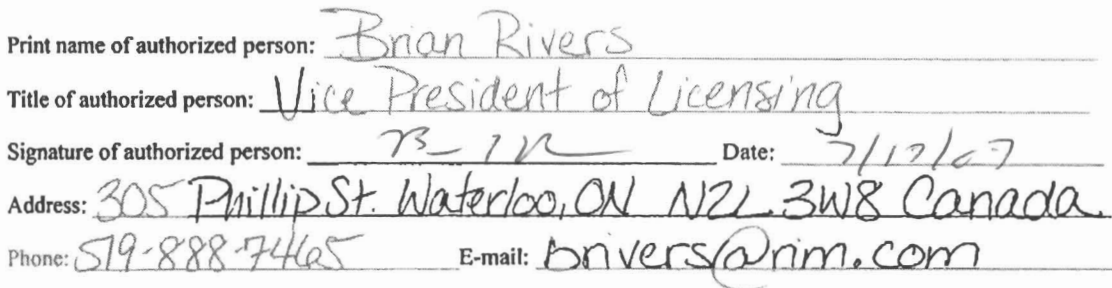 Print name of authorized person: Brian Rivers
Title of authorized person: Vice President of Licensing
Signature of authorized person: Date: 7/17/07
Address: 305 Phillip St. Waterloo, ON N2L 3W8 Canada
Phone: 519-888-7465 E-mail: brivers@rim.com